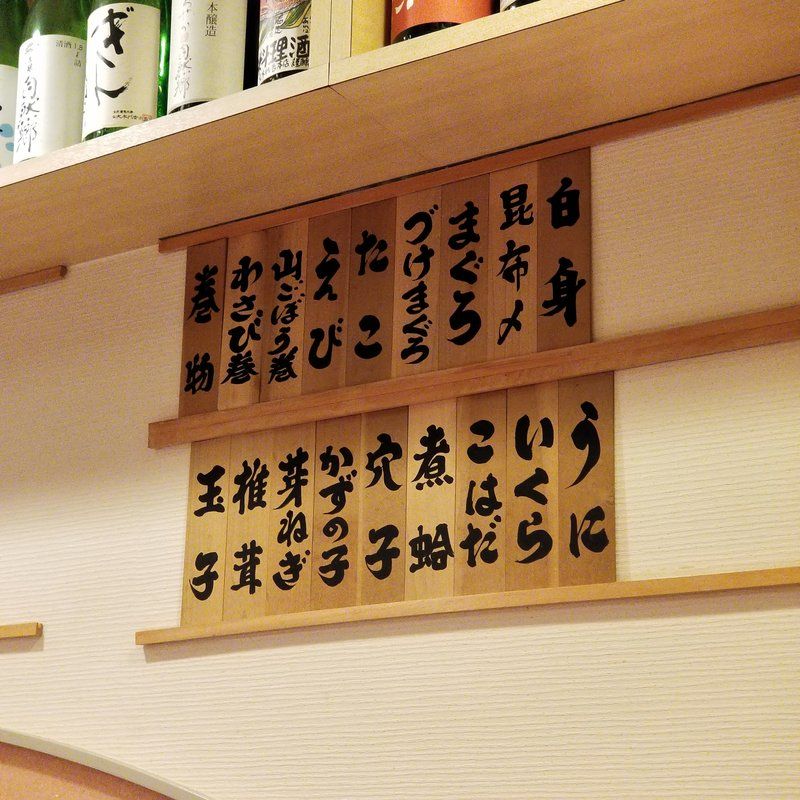 白身
昆布〆
まぐろ
づけまぐろ
たこ
えび
山ごぼう巻
わさび巻
巻物
うに
いくら
こはだ
煮蛤
穴子
かずの子
芽ねぎ
椎茸
玉子
ぎん
本醸造
清酒
料理酒